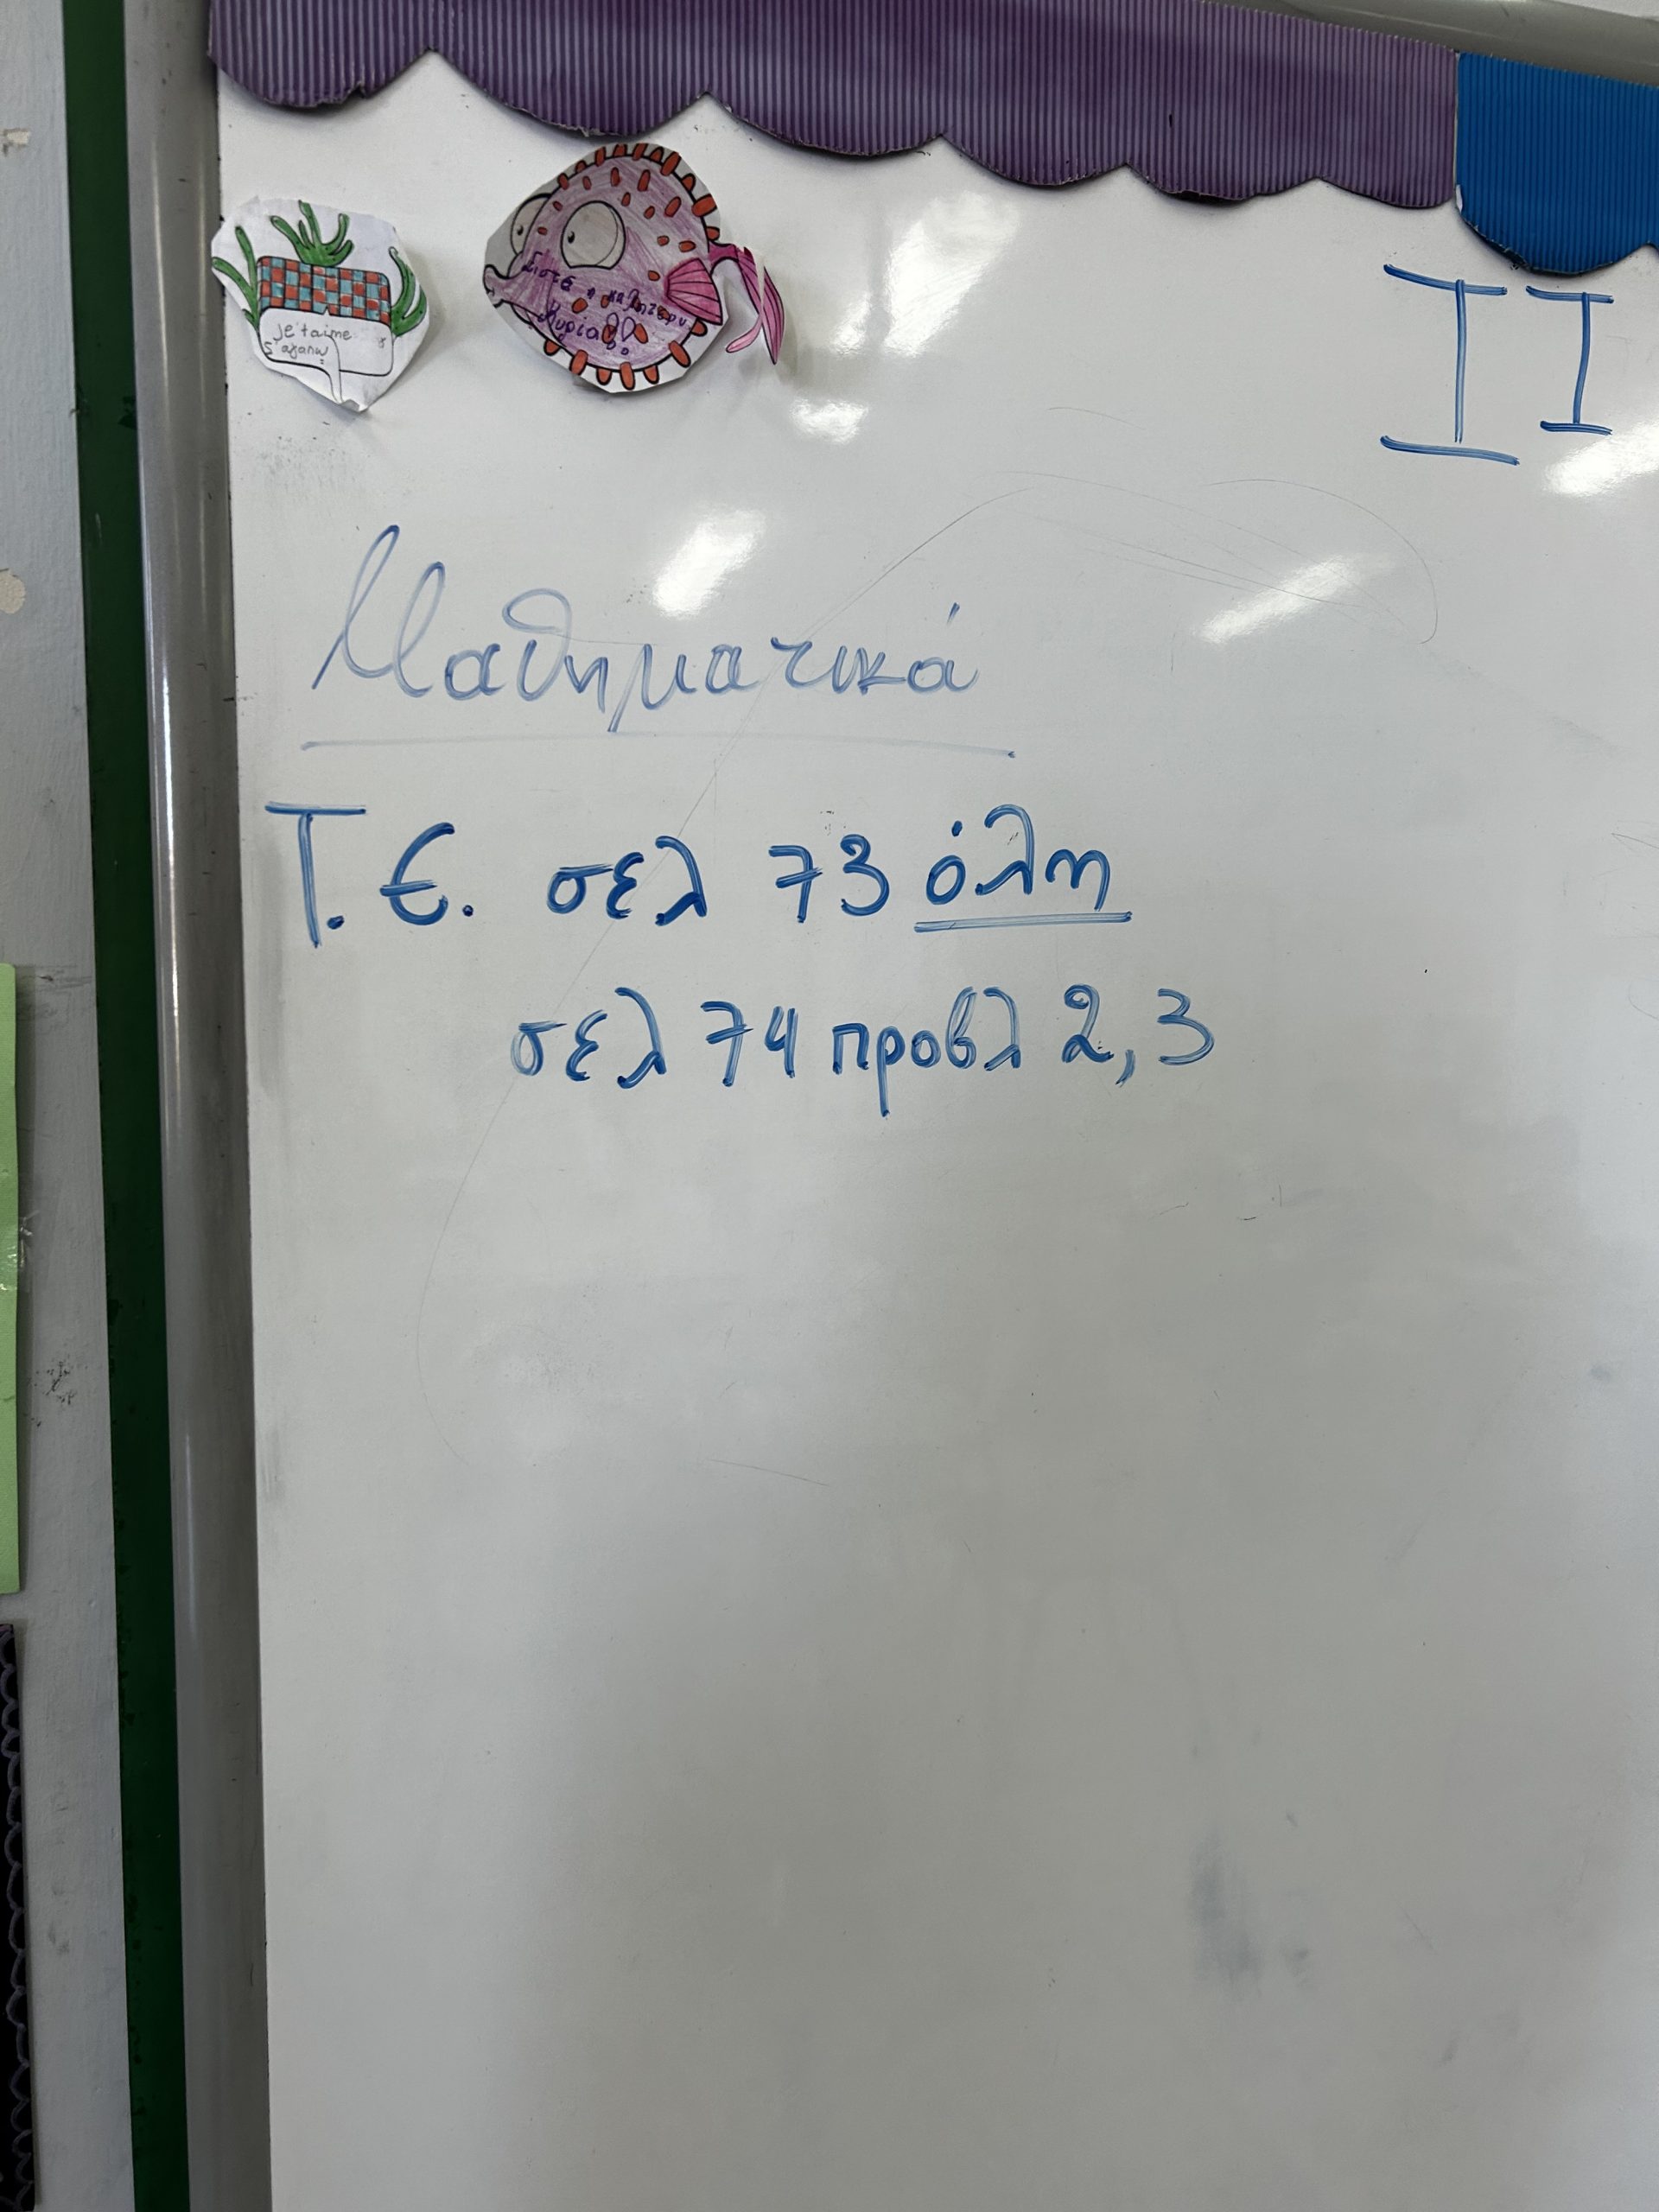 je t'aime
s'αγαπω
Είστε η καλύτερη
Κυρία
II
Μαθηματικά
Τ.Ε. σελ 73 όλη
σελ 74 προβλ 2, 3